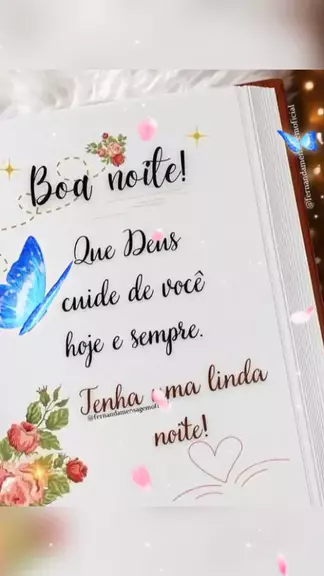 Boa noite!
Que Deus
cuide de você
hoje e sempre.
Tenha uma linda
noite!